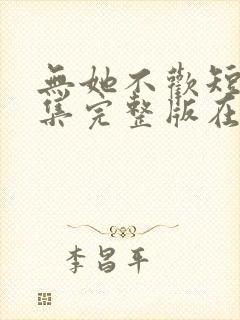 無她不歡短
集完整版在
李昌平